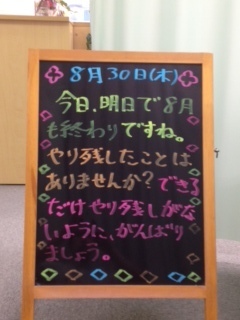 8月30日(木)
今日、明日で8月
も終わりですね。
やり残したことは
ありませんか?できる
だけやり残しがな
いように、がんばり
ましょう。